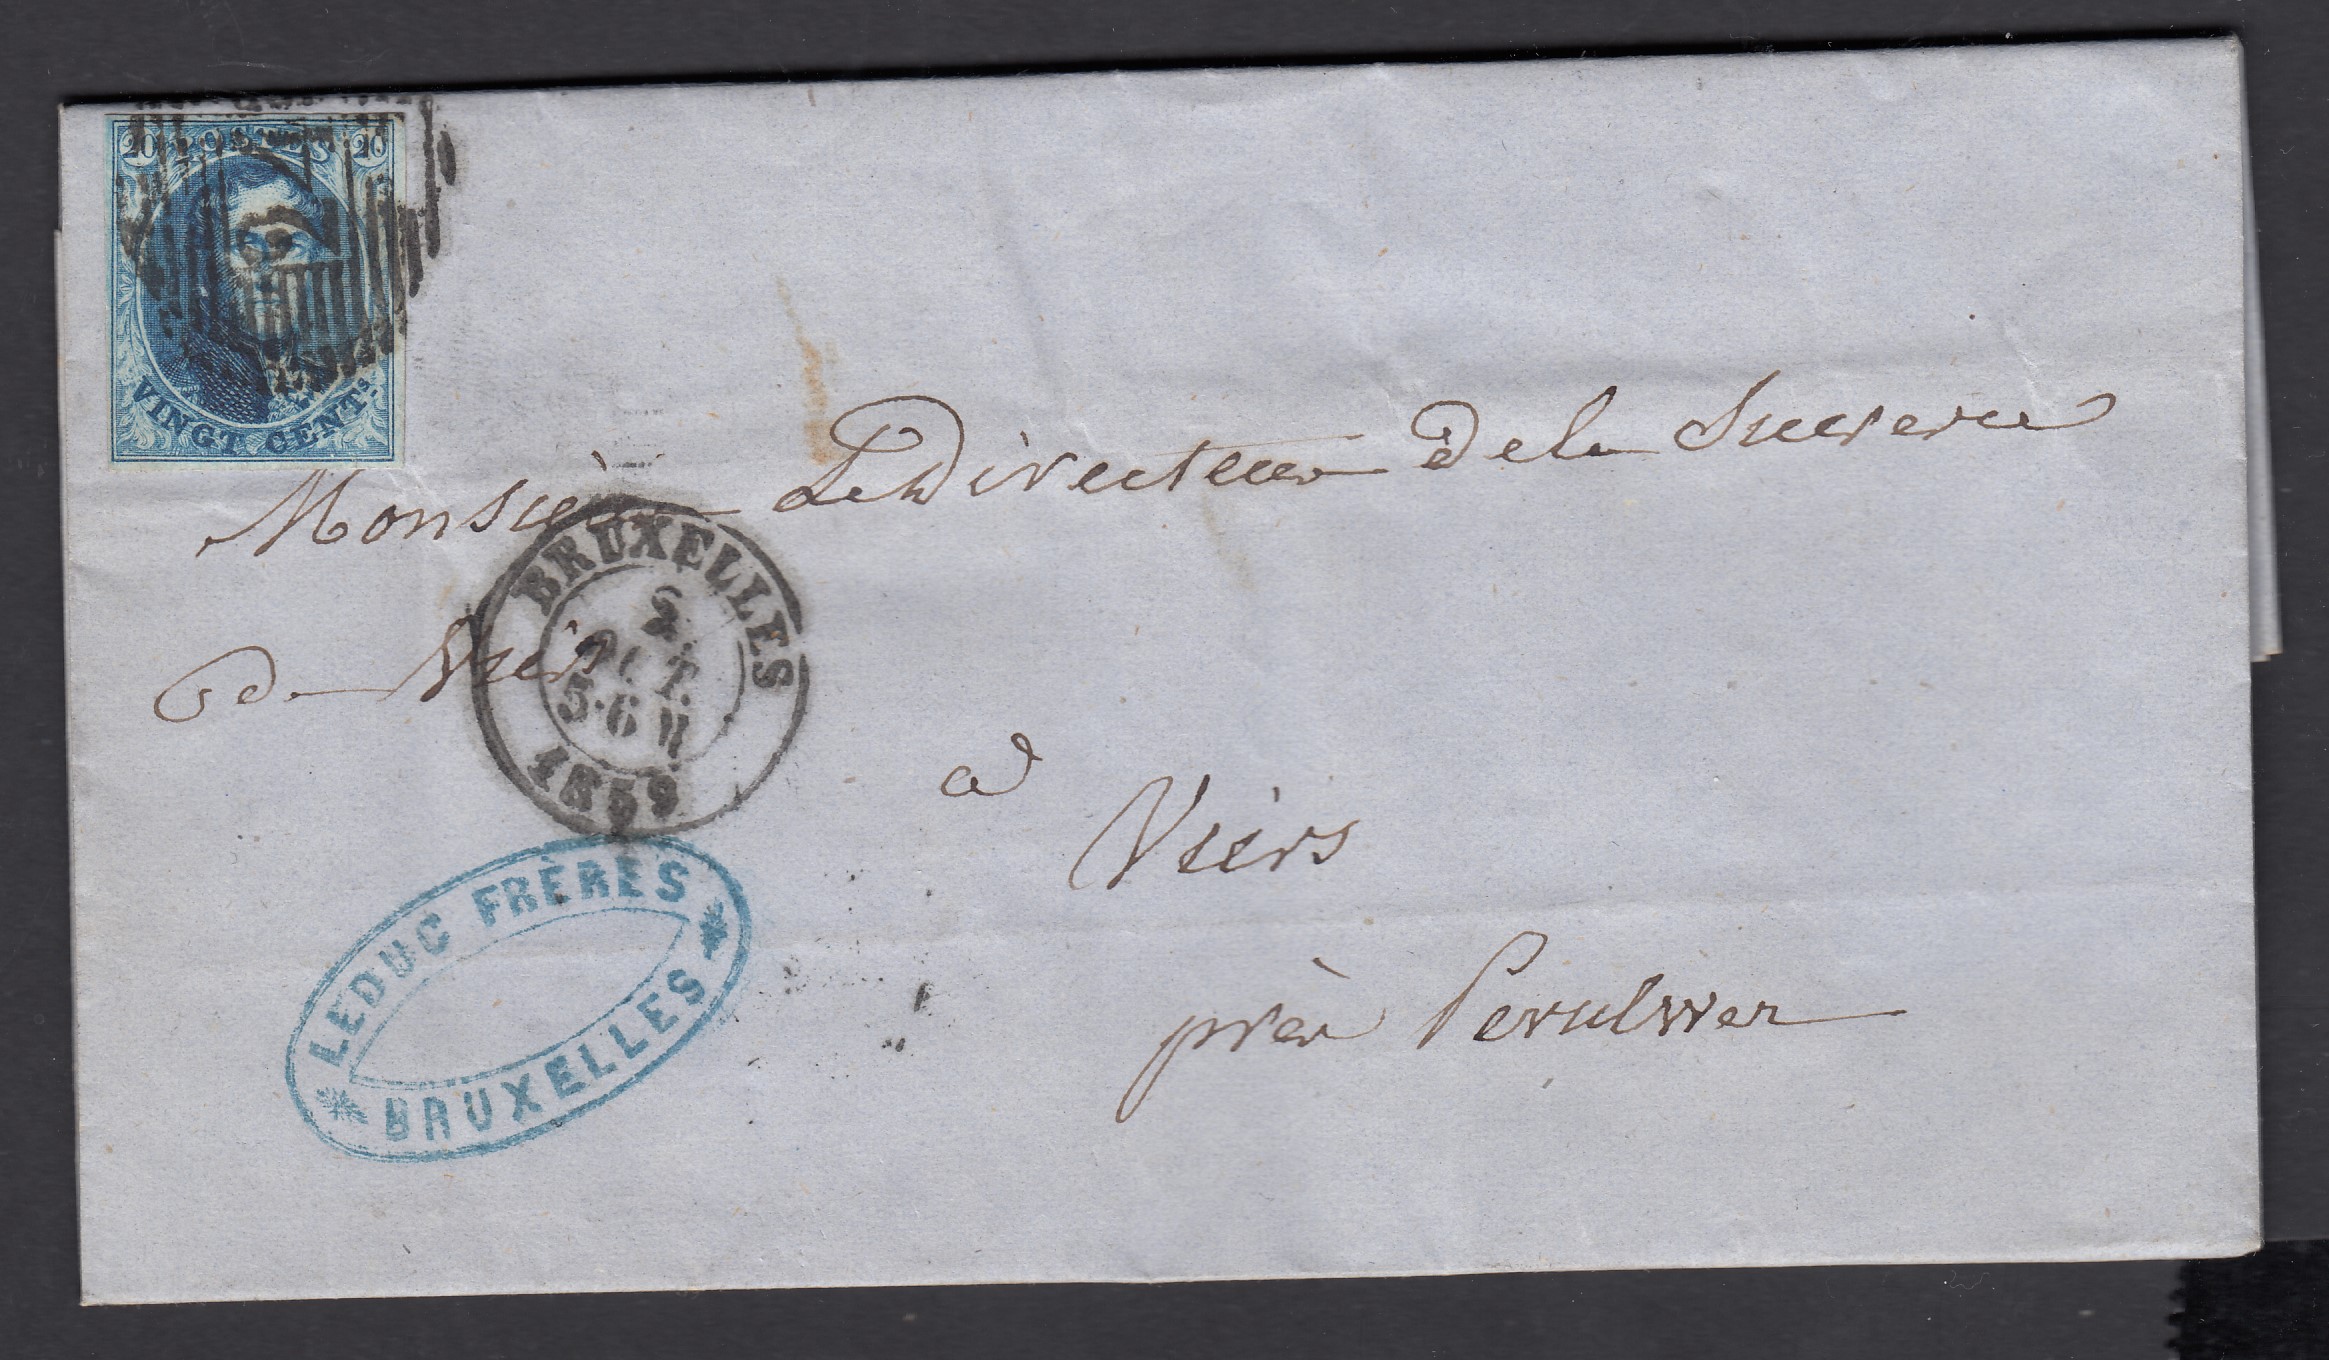 20 POSTES 20
VINGT CENTS.
Monsieur Le Directeur de la Sucrerie
de Viers
BRUXELLES
OCT.
5-6
1859
à
Viers
près Perulwez
LEDUC FRÈRES
BRUXELLES